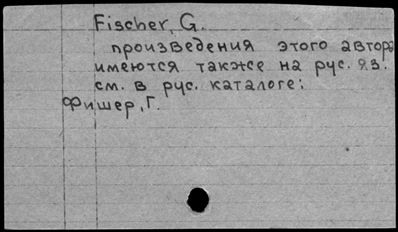 Fischer, G.
произведения этого автора
имеются также на рус. яз.
см. в рус. каталоге:
Фишер, Г.